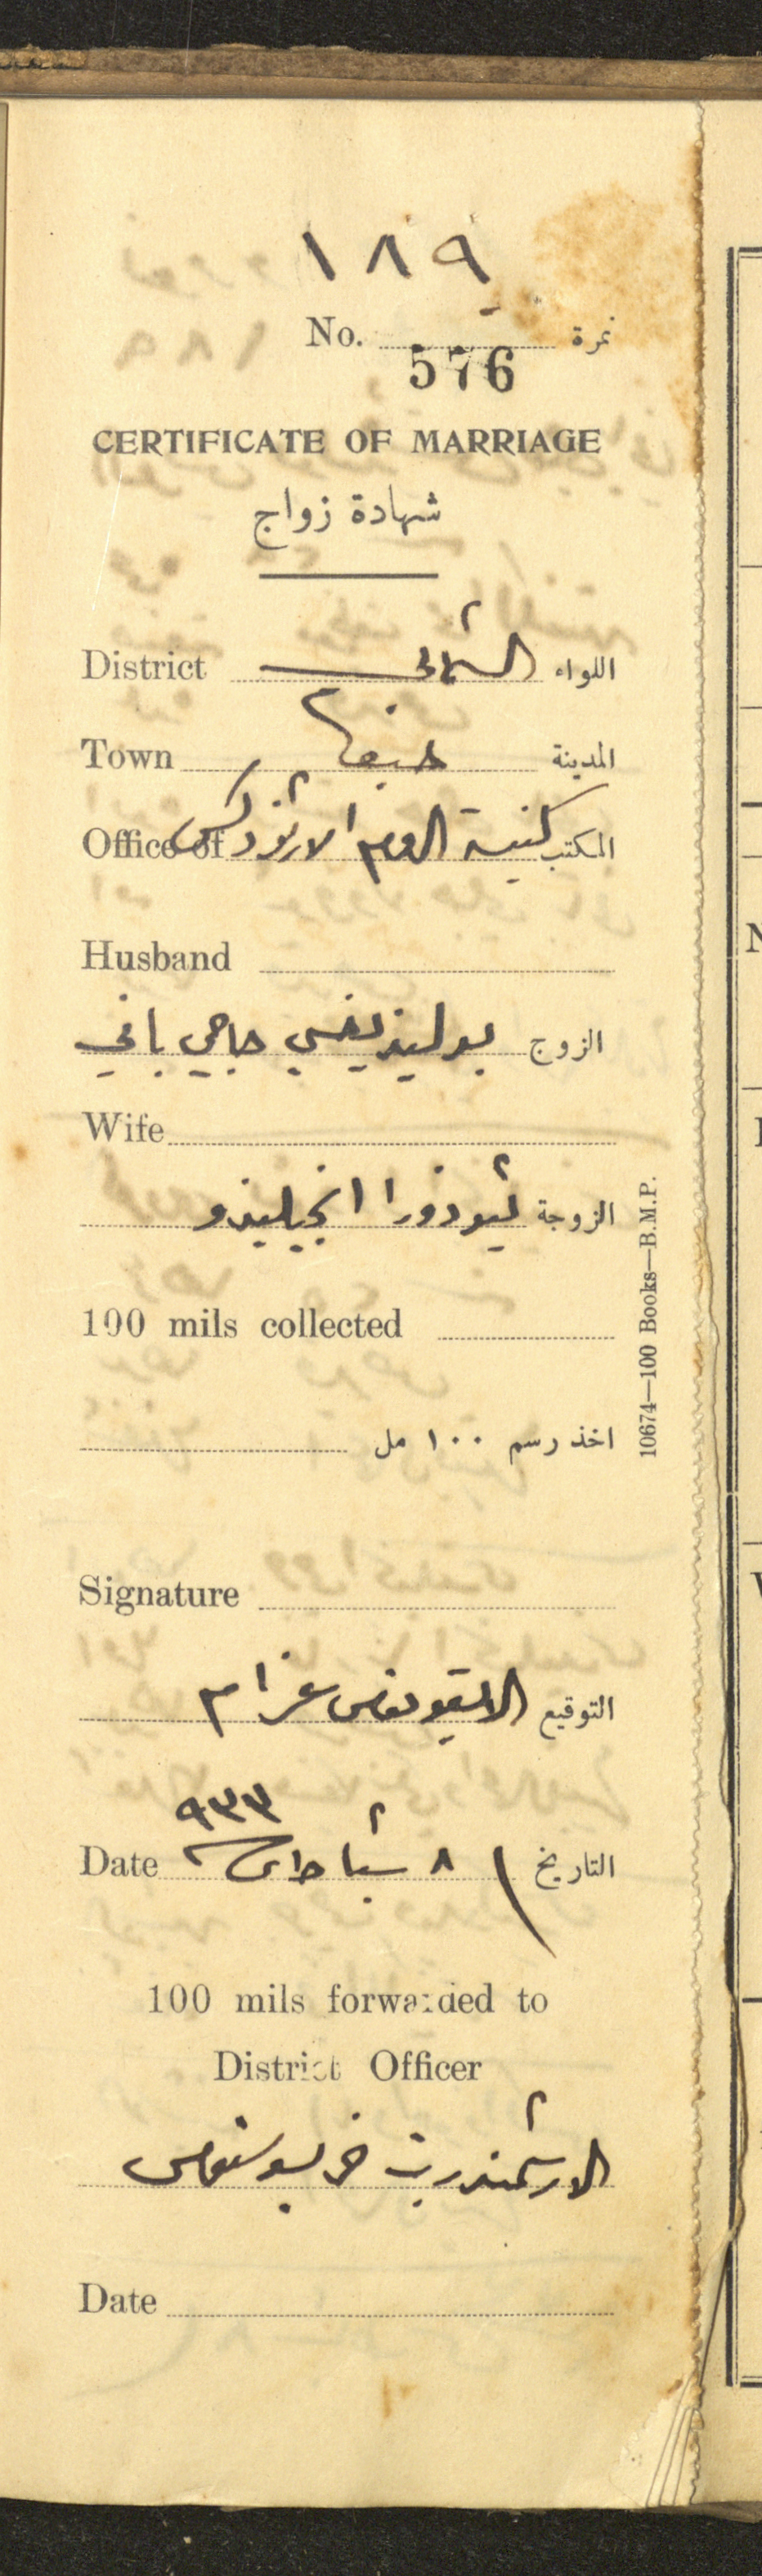 ١٨٩
No. نمرة
576
CERTIFICATE OF MARRIAGE
شهادة زواج
District الشمالي اللواء
Town حيفا المدينة
Office of كنيسة الروم الارثوذكس المكتب
Husband
الزوج بوليذيفسي حاجي يافي
Wife
الزوجة ثيوذورا انجيليذو
100 mils collected
اخذ رسم ١٠٠ مل
Signature
التوقيع الايقونوس عزام
Date ٨ شباط ٩٣٣ التاريخ
100 mils forwarded to
District Officer
الارشمندريت خريسوستموس
Date
10674—100 Books—B.M.P.